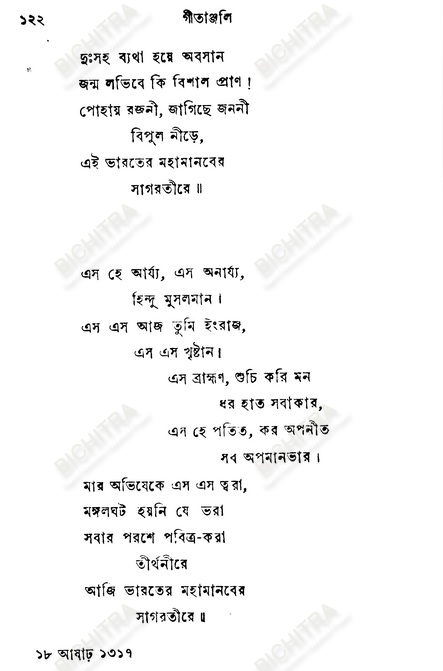 ১২২ গীতাঞ্জলি
দুঃসহ ব্যথা হয়ে অবসান
জন্ম লভিবে কি বিশাল প্রাণ!
পোহায় রজনী, জাগিছে জননী
বিপুল নীড়ে,
এই ভারতের মহামানবের
সাগরতীরে॥
এস হে আর্য্য, এস অনার্য্য,
হিন্দু মুসলমান।
এস এস আজ তুমি ইংরাজ,
এস এস খৃষ্টান।
এস ব্রাহ্মণ, শুচি করি মন
ধর হাত সবাকার,
এস হে পতিত, কর অপনীত
সব অপমানভার।
মার অভিষেকে এস এস ত্বরা,
মঙ্গলঘট হয়নি যে ভরা
সবার পরশে পবিত্র-করা
তীর্থনীরে
আজি ভারতের মহামানবের
সাগরতীরে॥
১৮ আষাঢ় ১৩১৭
BICHITRA
BICHITRA
BICHITRA
BICHITRA
BICHITRA
BICHITRA
BICHITRA
BICHITRA